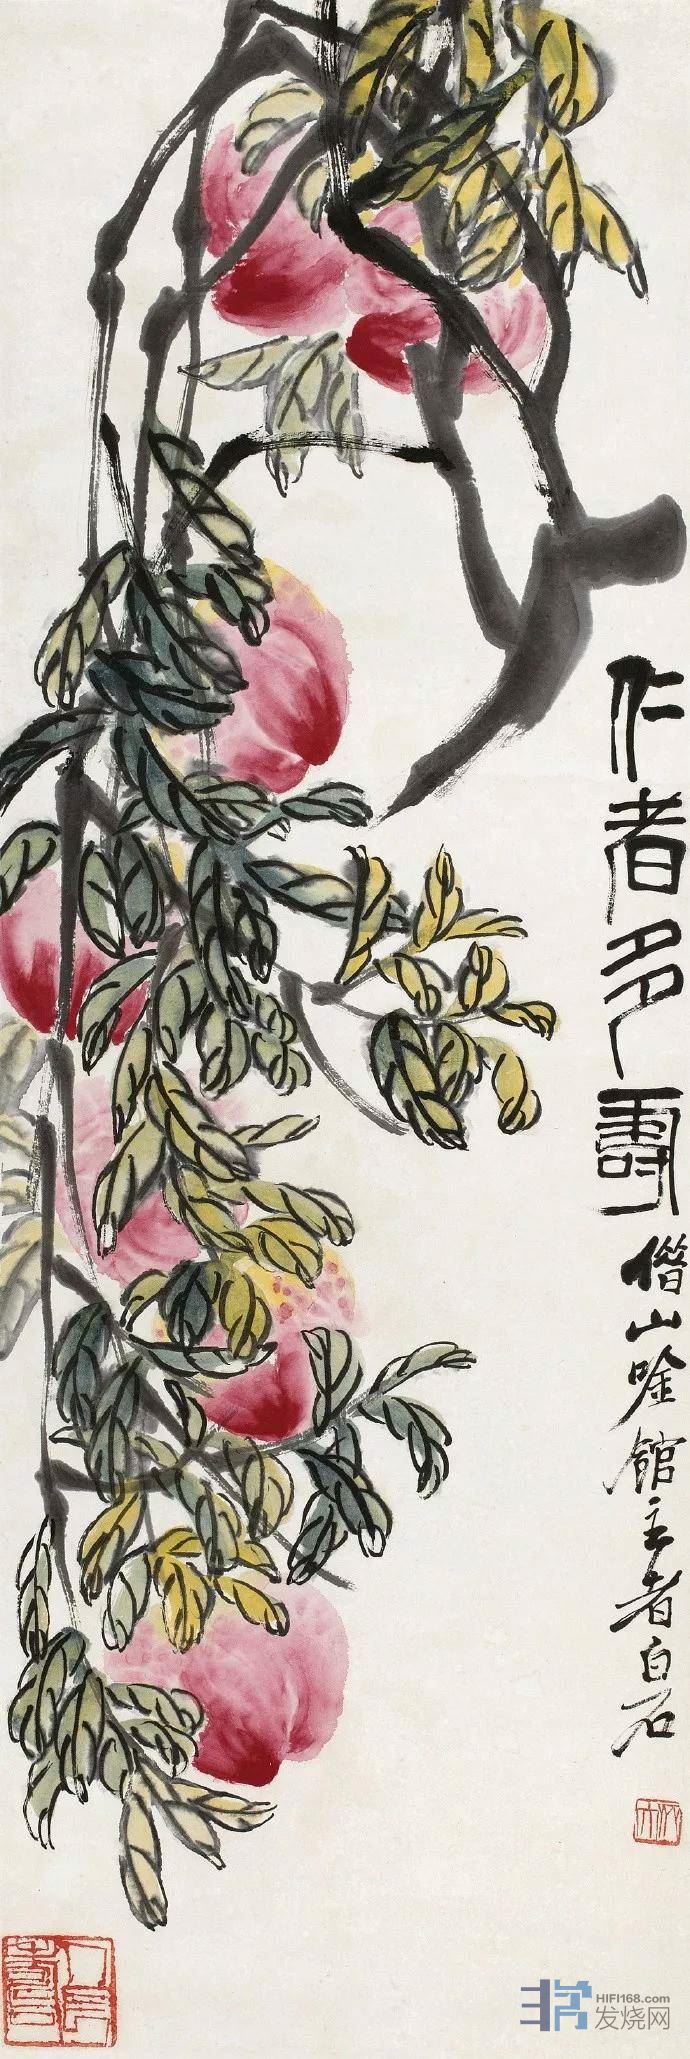 仁者多壽
借山唫館主者白石
HIFI168.com
发烧网